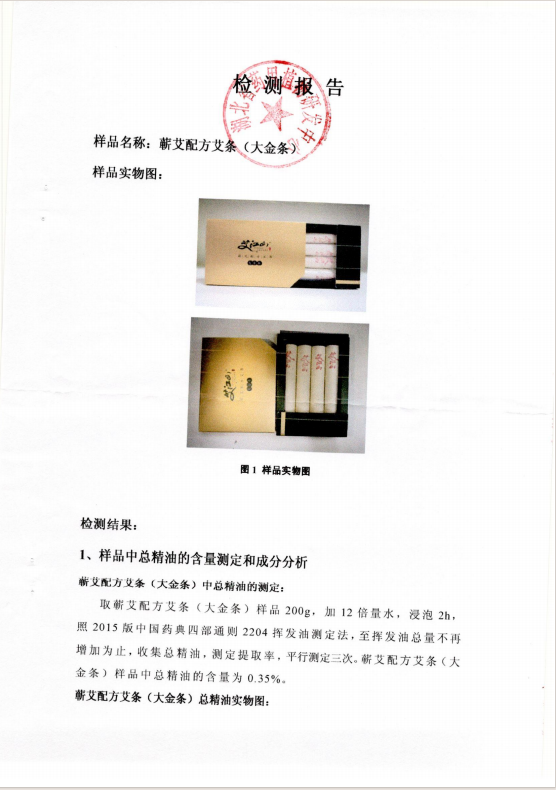 检 测 报 告
样品名称：蕲艾配方艾条（大金条）
样品实物图：
图 1 样品实物图
检测结果：
1、样品中总精油的含量测定和成分分析
蕲艾配方艾条（大金条）中总精油的测定：
取蕲艾配方艾条（大金条）样品 200g，加 12 倍量水，浸泡 2h，
照 2015 版中国药典四部通则 2204 挥发油测定法，至挥发油总量不再
增加为止，收集总精油，测定提取率，平行测定三次。蕲艾配方艾条（大
金条）样品中总精油的含量为 0.35%。
蕲艾配方艾条（大金条）总精油实物图：